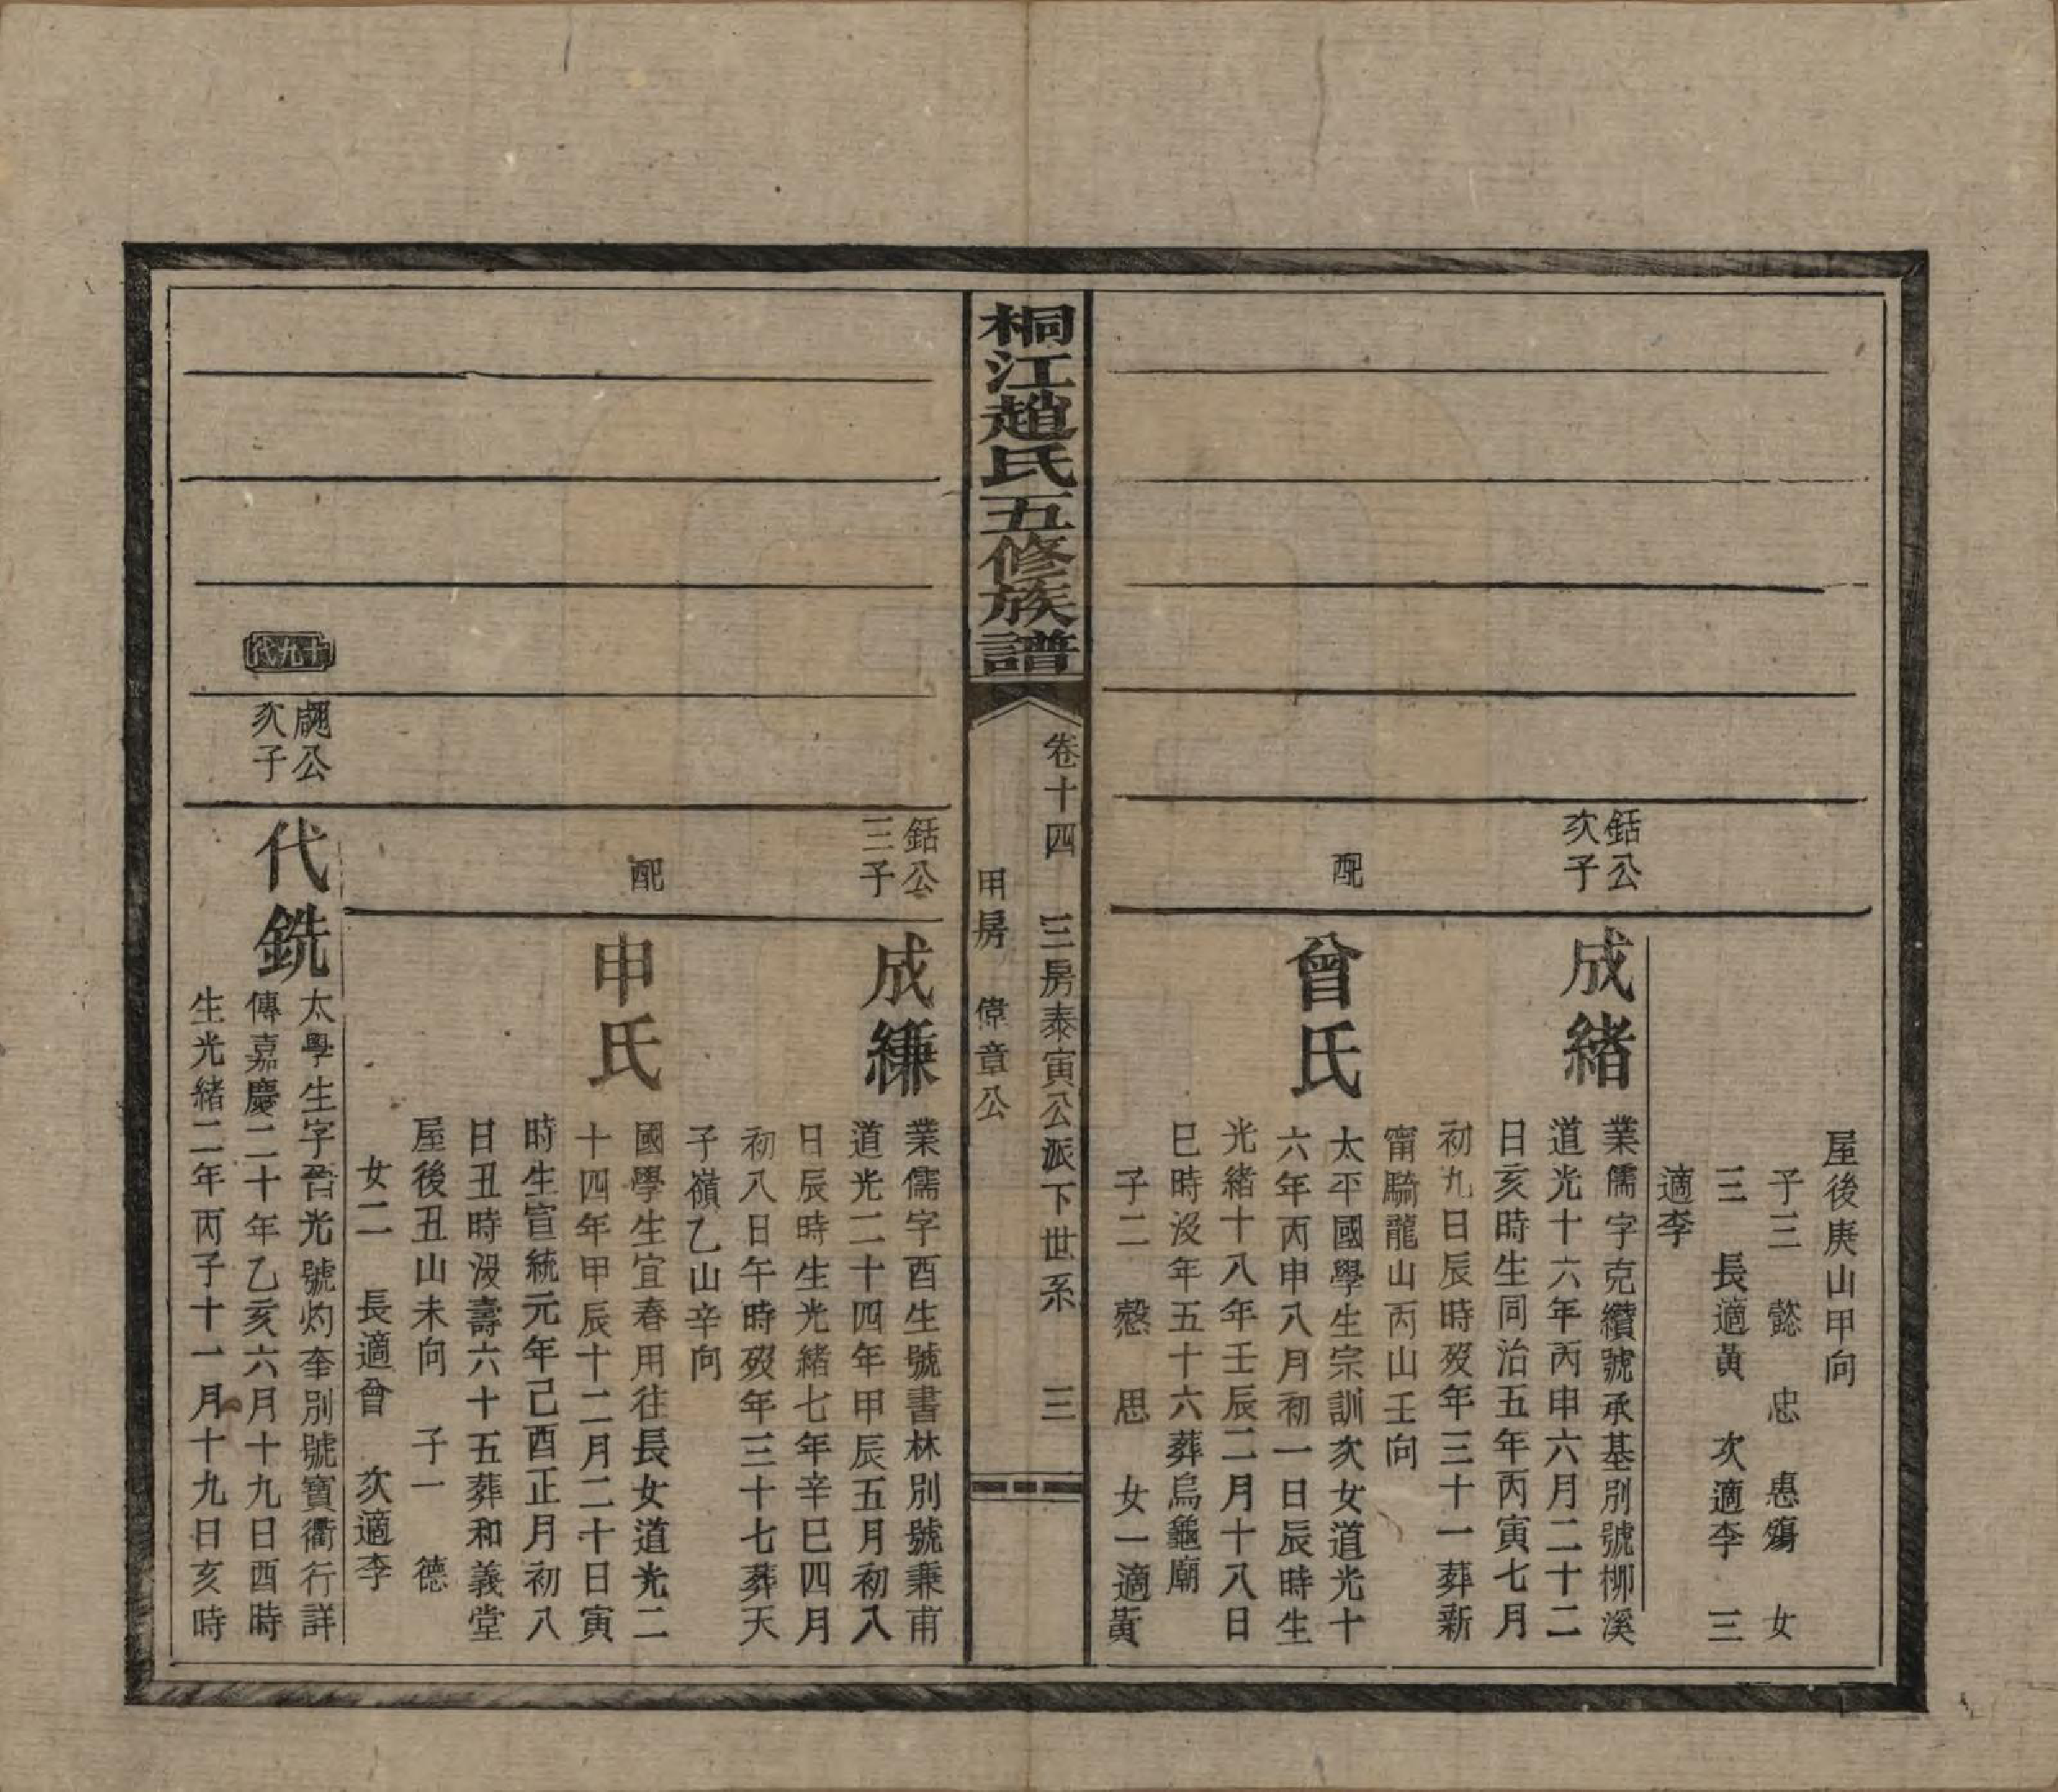 屋後庚山甲向
子三　懿　忠　惠殤　女
三　長適黃　次適李　三
適李
鉐公
次子
成緒
業儒字克纘號承基別號柳溪
道光十六年丙申六月二十二
日亥時生同治五年丙寅七月
初九日辰時歿年三十一葬新
甯騎龍山丙山壬向
配
曾氏
太平國學生宗訓次女道光十
六年丙申八月初一日辰時生
光緒十八年壬辰二月十八日
巳時沒年五十六葬烏龜廟
子二　愨　思　女一適黃
桐江趙氏五修族譜
卷十四　三房泰寅公派下世系　三
甲房　偉章公
鉐公
三子
成縑
業儒字酉生號書林別號秉甫
道光二十四年甲辰五月初八
日辰時生光緒七年辛巳四月
初八日午時歿年三十七葬天
子嶺乙山辛向
配
申氏
國學生宜春用往長女道光二
十四年甲辰十二月二十日寅
時生宣統元年己酉正月初八
日丑時沒壽六十五葬和義堂
屋後丑山未向　子一　德
女二　長適曾　次適李
十九代
公
次子
代銑
太學生字晉光號灼奎別號寶衢行詳
傳嘉慶二十年乙亥六月十九日酉時
生光緒二年丙子十一月十九日亥時